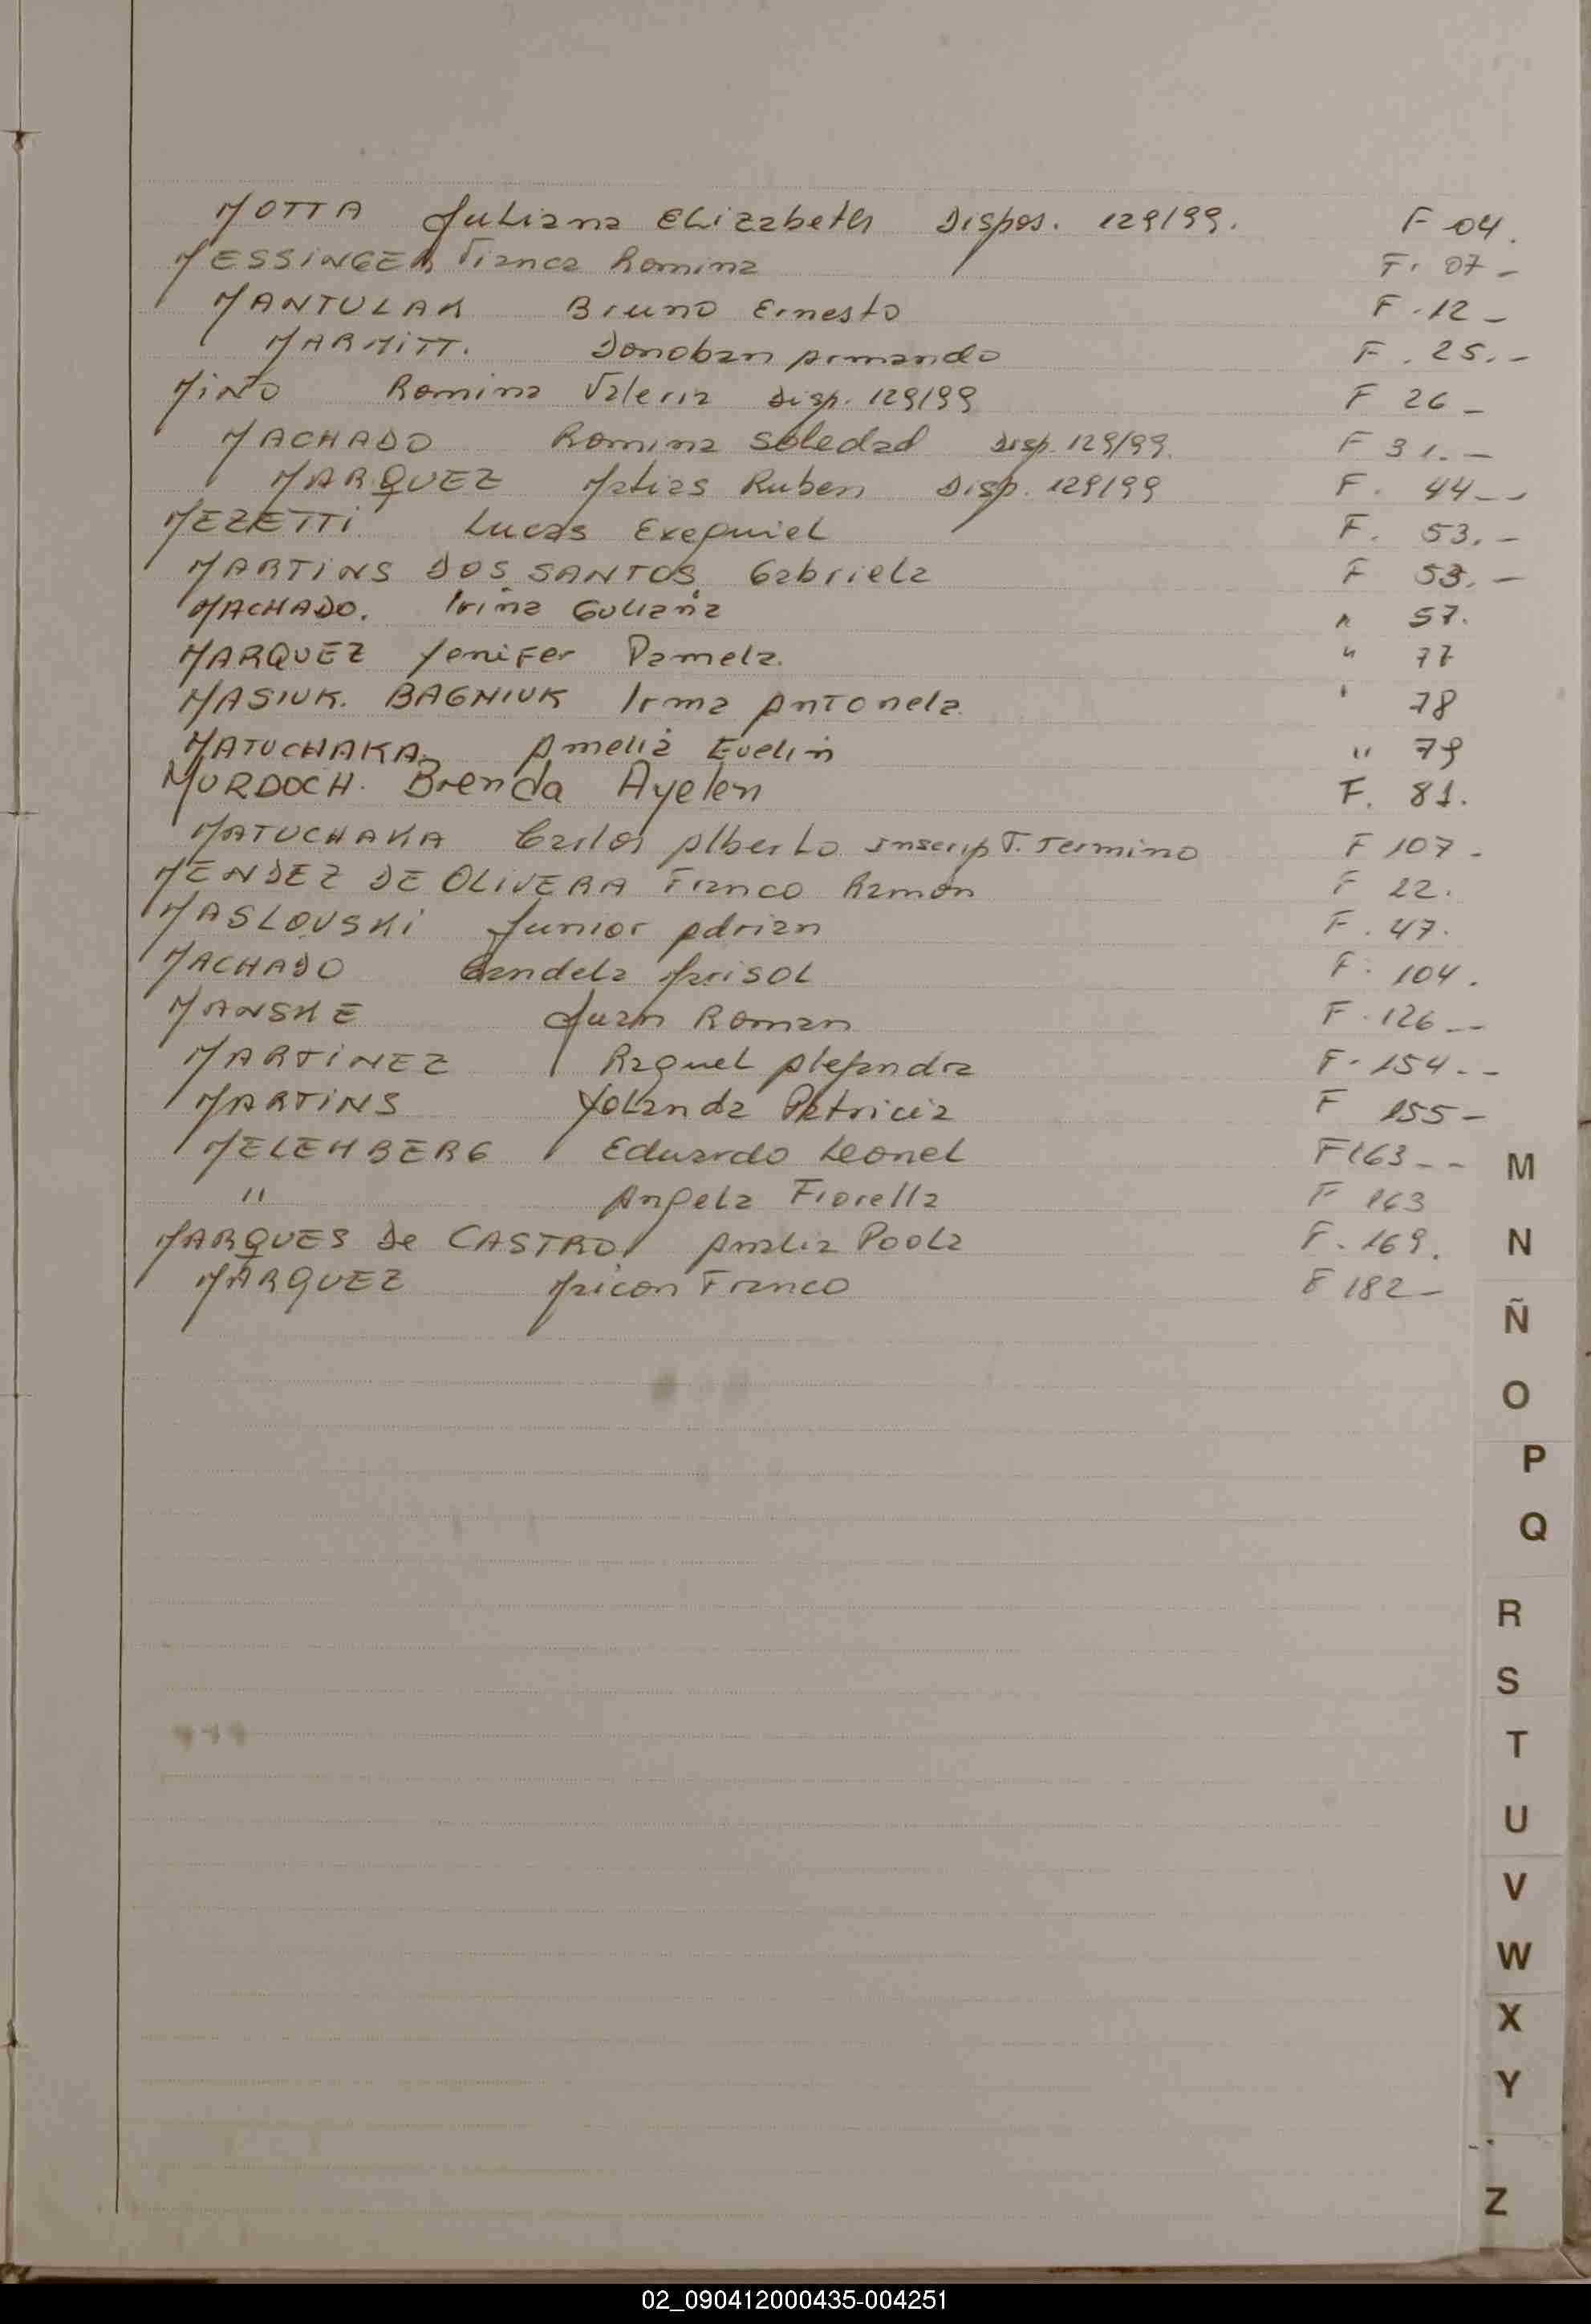 MOTTA Juliana Elizabeth Dispos. 129/99. F 04.
MESSINGER Franca Romina F. 07 -
MANTULAK Bruno Ernesto F. 12 -
MARMITT. Donoban Armando F. 25. -
MIÑO Romina Valeria Disp. 129/99 F 26 -
MACHADO Romina Soledad Disp. 129/99. F 31. -
MARQUEZ Matias Ruben Disp. 129/99 F. 44 - -
MEZETTI Lucas Exequiel F. 53. -
MARTINS DOS SANTOS Gabriela F 53. -
MACHADO. Irina Guliana " 57.
MARQUEZ Yenifer Pamela. " 77
MASIUK. BAGNIUK Irma Antonela " 78
MATUCHAKA. Amelia Evelin " 79
MURDOCH. Brenda Ayelen F. 81.
MATUCHAKA Carlos Alberto Inscrip T. Termino F 107 -
MENDEZ DE OLIVERA Franco Ramon F 22.
MASLOVSKI Junior Adrian F. 47.
MACHADO Candela Marisol F. 104.
MANSKE Juan Roman F. 126 - -
MARTINEZ Raquel Alejandra F. 154 - -
MARTINS Yolanda Patricia F 155 -
MELEHBERG Eduardo Leonel F 163 - -
" Angela Fiorella F 163
MARQUES De CASTRO Analia Paola F. 169.
MARQUEZ Maicon Franco F 182 -
M
N
Ñ
O
P
Q
R
S
T
U
V
W
X
Y
Z
02_090412000435-004251